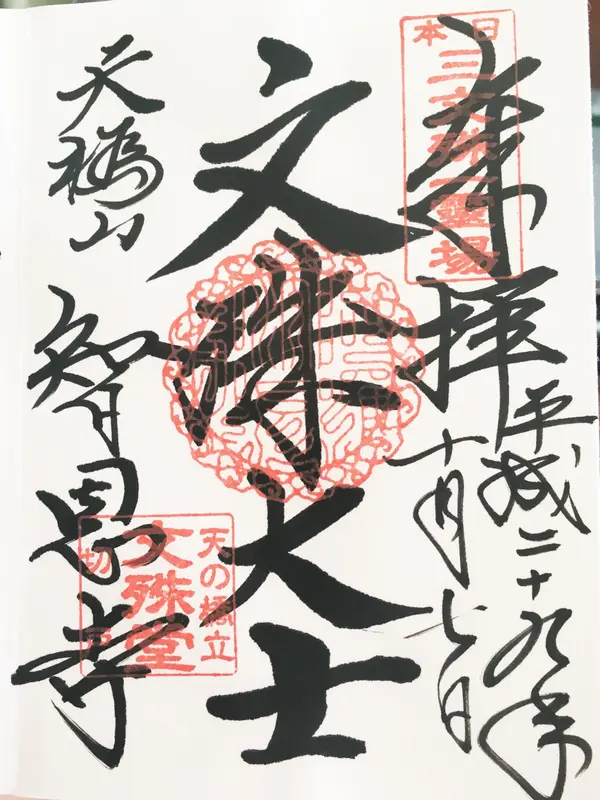 奉拝
平成二十九年
十月七日
日本
三文殊一霊場
文殊大士
天橋山
智恩寺
天の橋立
文殊堂
切戸